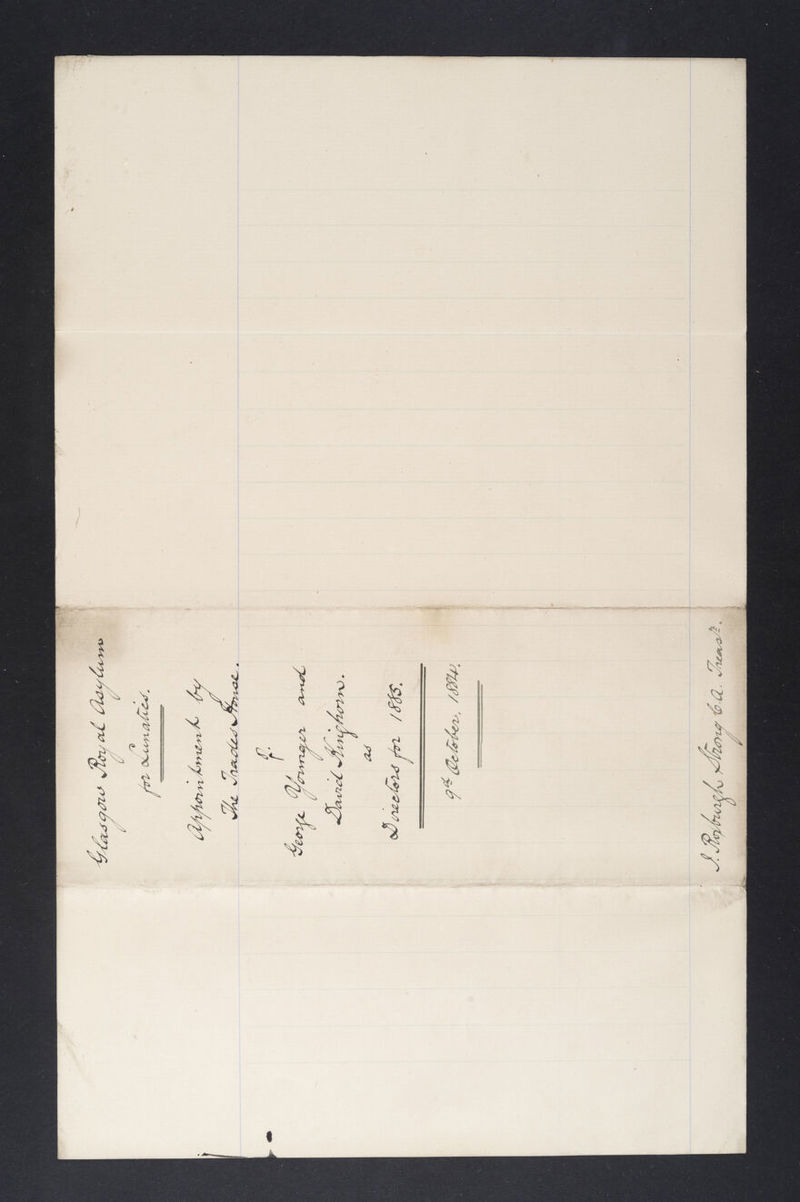 Glasgow Royal Asylum
for Lunatics.
Appointment by
The Trades House.
of
George Younger and
David Kinghorn.
as
Directors for 1885.
9th October, 1884.
J. Roxburgh Strong C.A. Treasr.